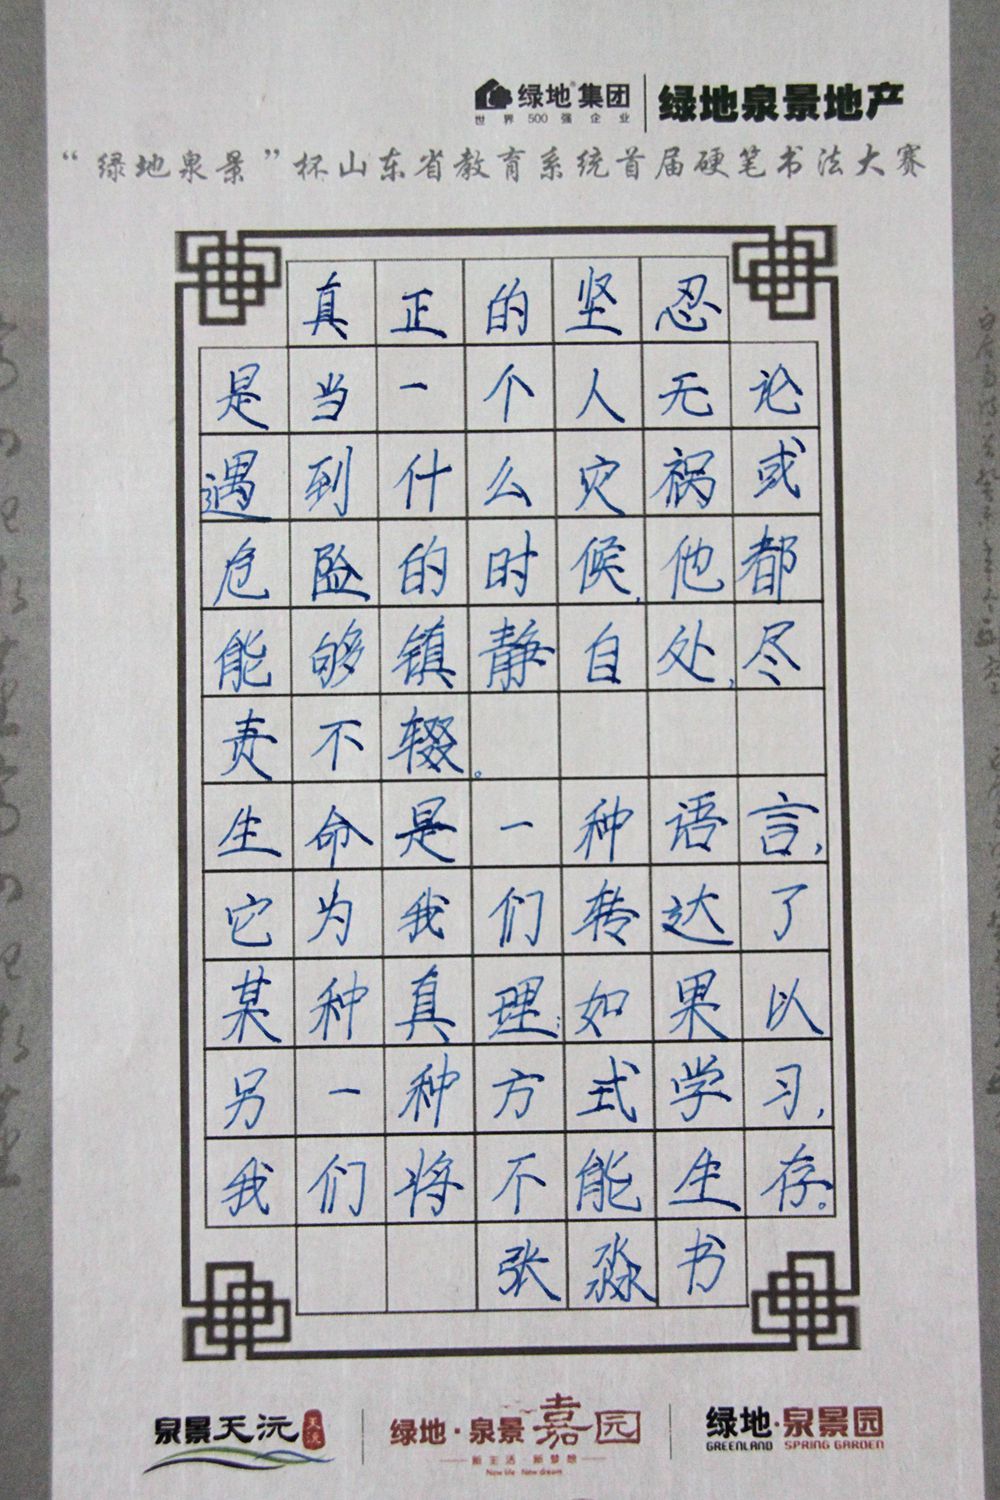 绿地集团 绿地泉景地产
世界500强企业
“绿地泉景”杯山东省教育系统首届硬笔书法大赛
真正的坚忍
是当一个人无论
遇到什么灾祸或
危险的时候,他都
能够镇静自处,尽
责不辍。
生命是一种语言,
它为我们转达了
某种真理;如果以
另一种方式学习,
我们将不能生存。
张淼书
泉景天沅 绿地·泉景嘉园 绿地·泉景园
新生活 新梦想 GREENLAND SPRING GARDEN
New life New dream